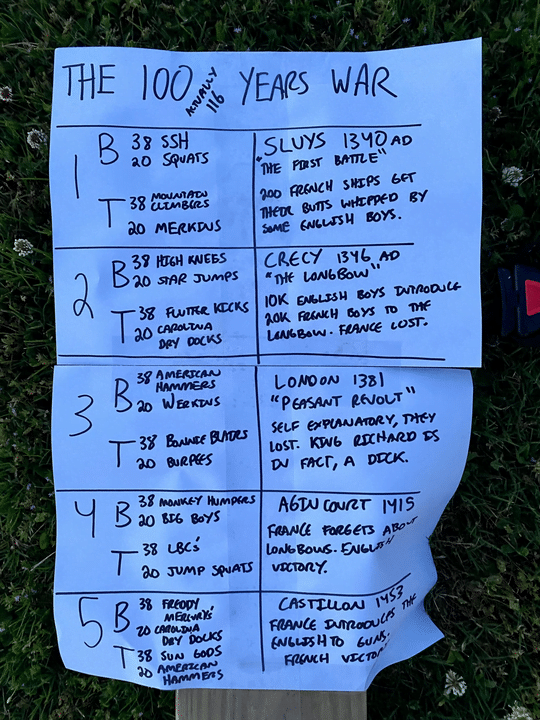 THE 100 YEARS WAR
ACTUALLY
116
1
B 38 SSH
20 SQUATS
T 38 MOUNTAIN
CLIMBERS
20 MERKINS
SLUYS 1340 AD
"THE FIRST BATTLE"
200 FRENCH SHIPS GET
THEIR BUTTS WHIPPED BY
SOME ENGLISH BOYS.
2
B 38 HIGH KNEES
20 STAR JUMPS
T 38 FLUTTER KICKS
20 CAROLINA
DRY DOCKS
CRECY 1346 AD
"THE LONGBOW"
10K ENGLISH BOYS INTRODUCE
20K FRENCH BOYS TO THE
LONGBOW. FRANCE LOST.
3
B 38 AMERICAN
HAMMERS
20 WERKINS
T 38 BONNIE BLAIRS
20 BURPEES
LONDON 1381
"PEASANT REVOLT"
SELF EXPLANATORY, THEY
LOST. KING RICHARD IS
IN FACT, A DICK.
4
B 38 MONKEY HUMPERS
20 BIG BOYS
T 38 LBC's
20 JUMP SQUATS
AGINCOURT 1415
FRANCE FORGETS ABOUT
LONGBOWS. ENGLISH
VICTORY.
5
B 38 FREDDY
MERCURYS'
20 CAROLINA
DRY DOCKS
T 38 SUN GODS
20 AMERICAN
HAMMERS
CASTILLON 1453
FRANCE INTRODUCES THE
ENGLISH TO GUNS.
FRENCH VICTORY